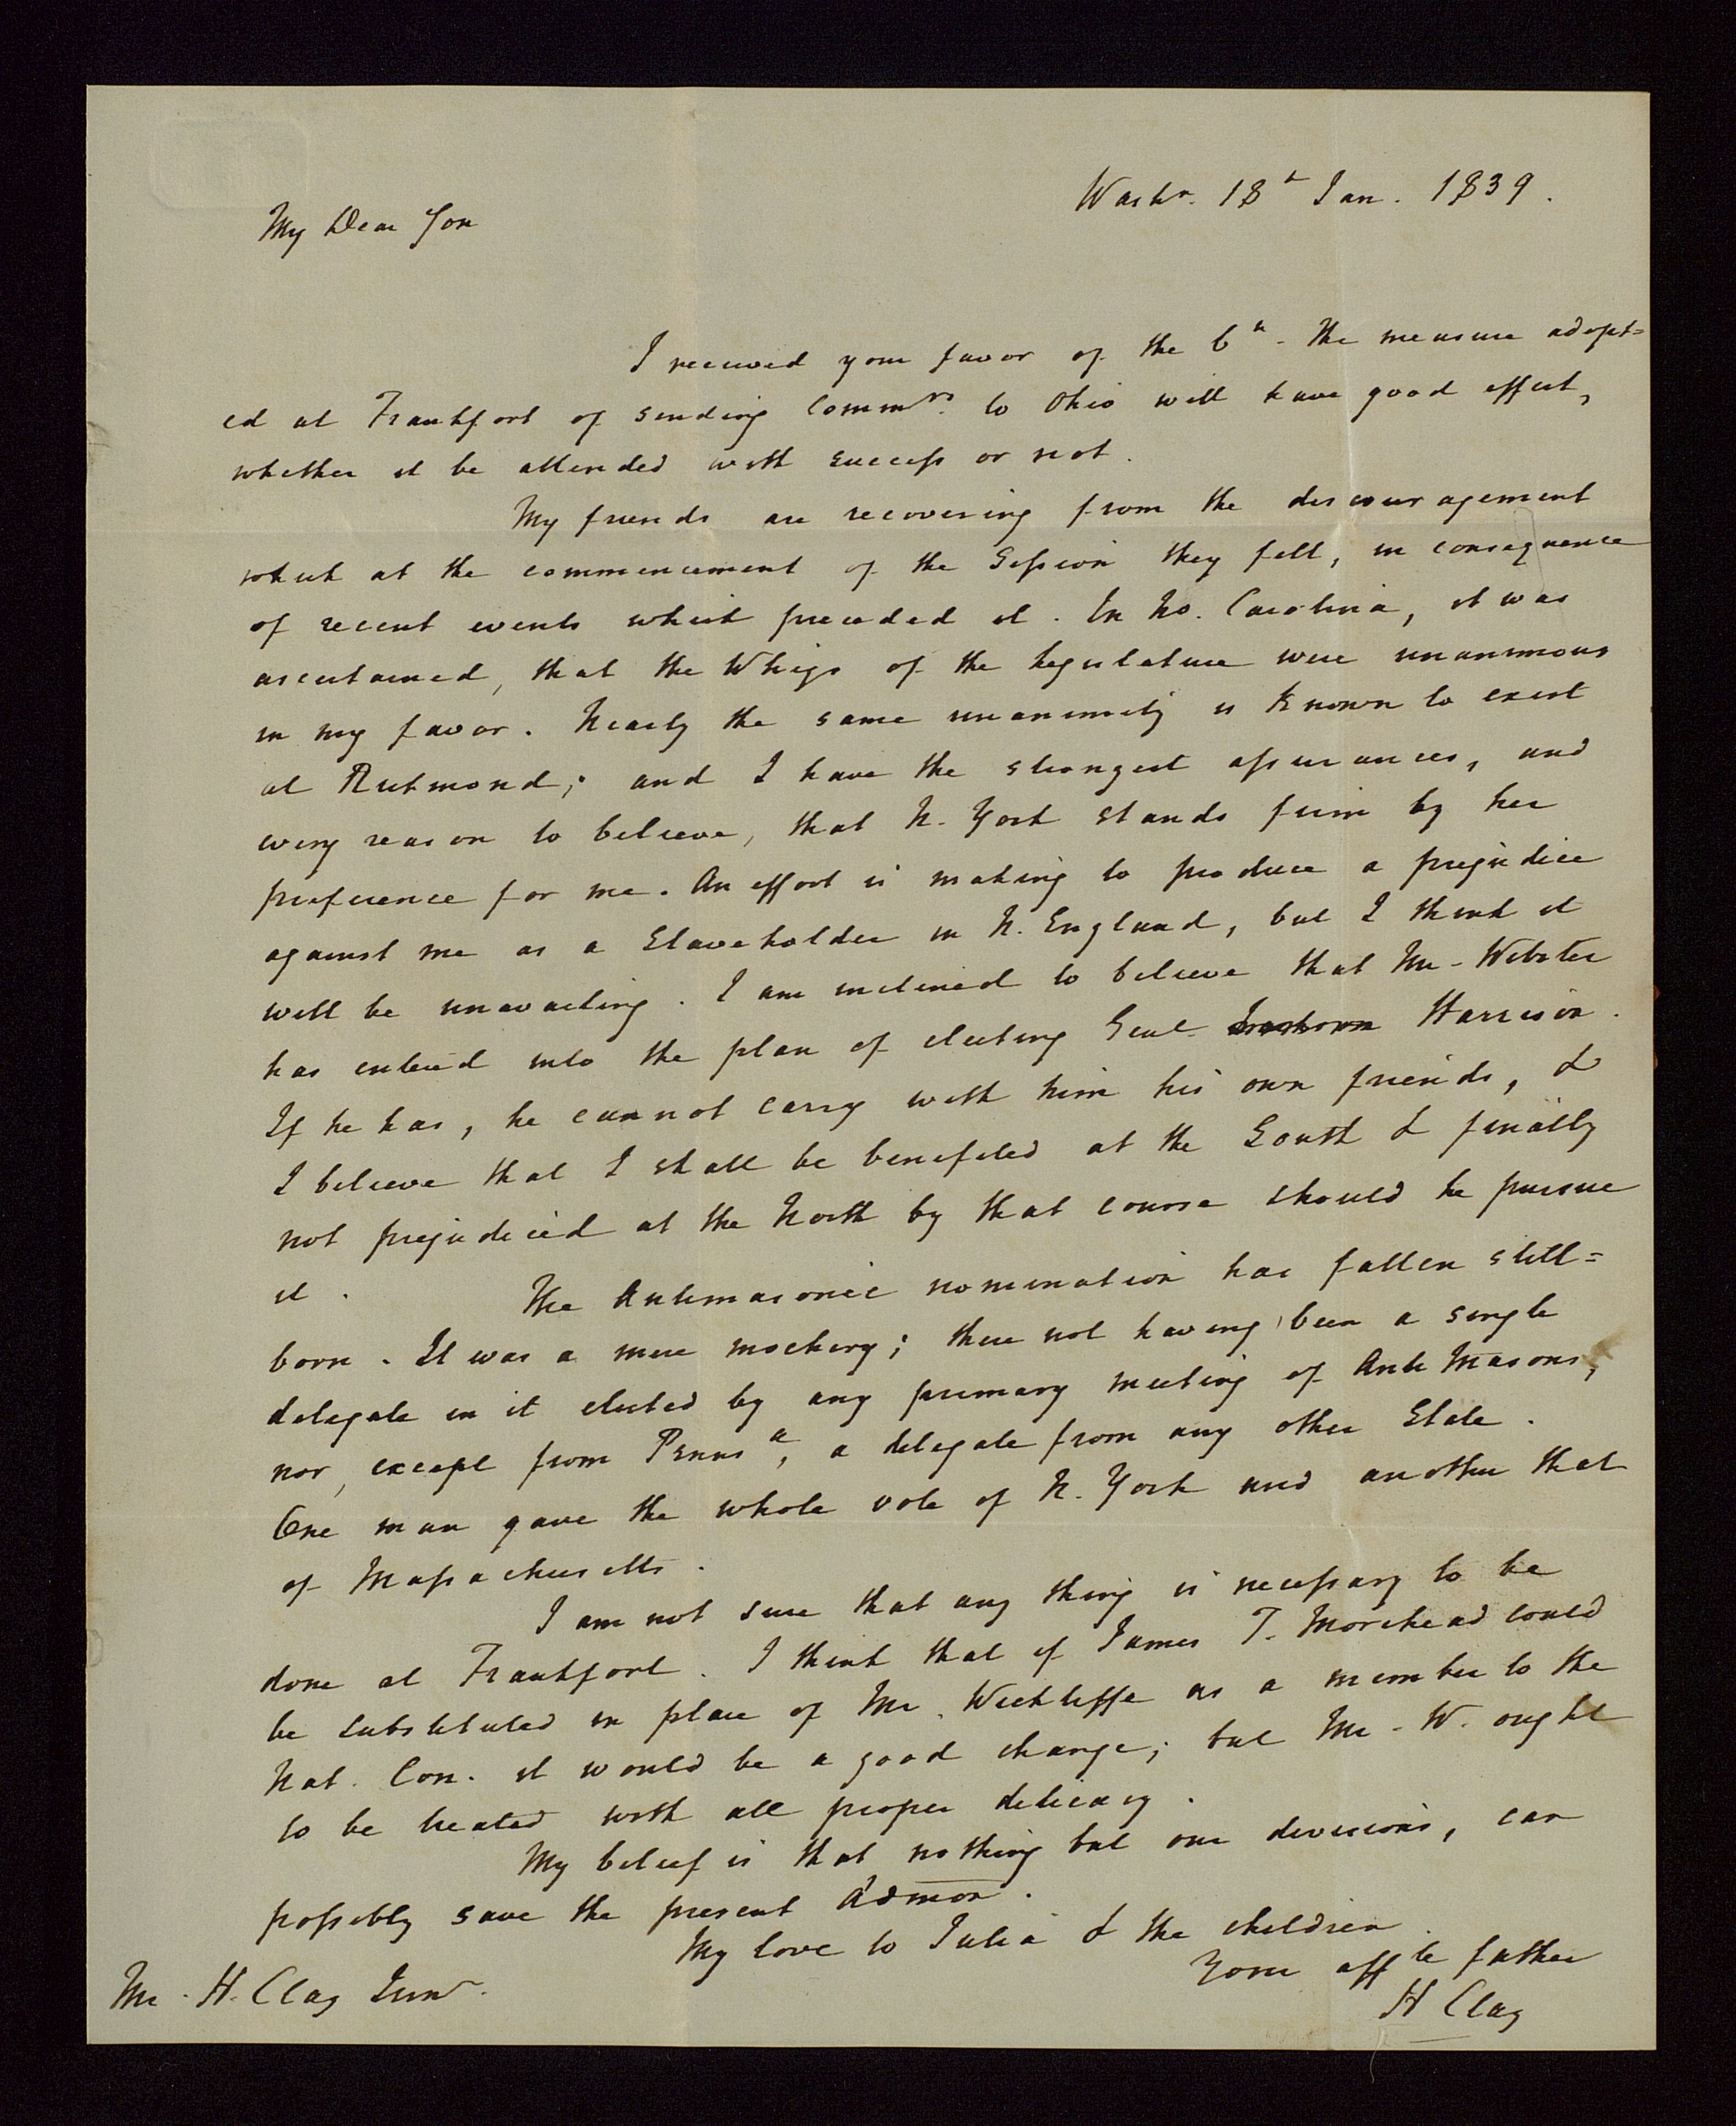 Washn. 18h Jan. 1839.
My Dear Son
I received your favor of the 6h. The measure adopt=
ed at Frankfort of sending Commrs. to Ohio will have good effect,
whether it be attended with success or not.
My friends are recovering from the discouragement
which at the commencement of the Session they felt, in consequence
of recent events which preceded it. In No. Carolina, it was
ascertained, that the Whigs of the Legislature were unanimous
in my favor. Nearly the same unanimity is known to exist
at Richmond; and I have the strongest assurances, and
every reason to believe, that N. York stands firm by her
preference for me. An effort is making to produce a prejudice
against me as a Slaveholder in N. England, but I think it
will be unavailing. I am inclined to believe that Mr. Webster
has entered into the plan of electing Genl. Harrison.
If he has, he cannot carry with him his own friends, &
I believe that I shall be benefited at the South & finally
not prejudiced at the North by that course should he pursue
it. The Antimasonic nomination has fallen still=
born. It was a mere mockery; there not having been a single
delegate in it elected by any primary meeting of Anti Masons,
nor, except from Pennsa, a delegate from any other State.
One man gave the whole vote of N. York and another that
of Massachusetts.
I am not sure that any thing is necessary to be
done at Frankfort. I think that if James T. Morehead could
be substituted in place of Mr. Wickliffe as a member to the
Nat. Con. it would be a good change; but Mr. W. ought
to be treated with all proper delicacy.
My belief is that nothing but our divisions, can
possibly save the present Admon.
My love to Julia & the children.
Your affte father
H Clay
Mr. H. Clay Junr.